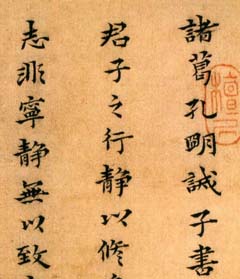 諸葛孔明誡子書
君子之行静以脩
志非寧静無以致